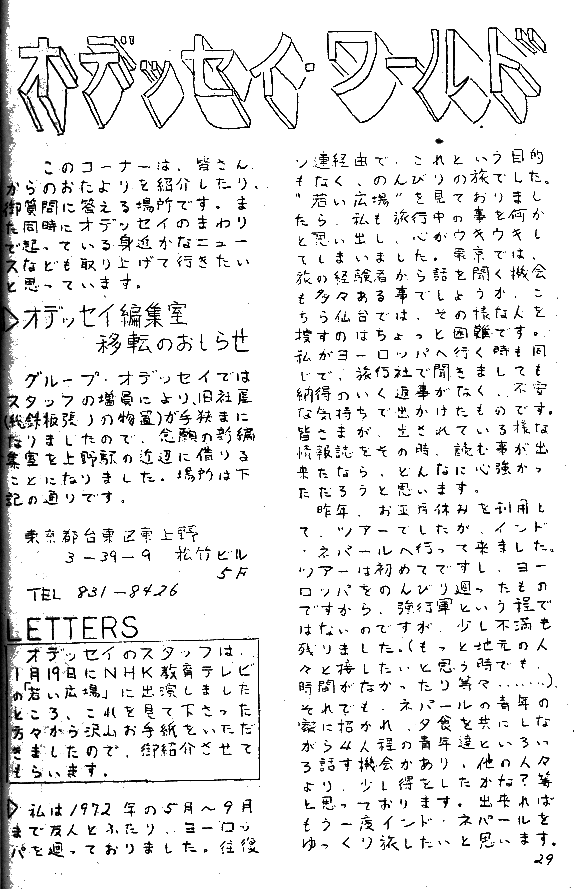 オデッセイ・ワールド
このコーナーは、皆さん
からのおたよりを紹介したり、
御質問に答える場所です。ま
た同時にオデッセイのまわり
で起っている身近かなニュー
スなども取り上げて行きたい
と思っています。
▷オデッセイ編集室
移転のおしらせ
グループ・オデッセイでは
スタッフの増員により、旧社屋
(総鉄板張りの物置)が手狭まに
なりましたので、念願の新編
集室を上野駅の近辺に借りる
ことになりました。場所は下
記の通りです。
東京都台東区東上野
3-39-9 松竹ビル
5F
TEL 831-8426
LETTERS
オデッセイのスタッフは、
1月19日にNHK教育テレビ
の「若い広場」に出演しました
ところ、これを見て下さった
方々から沢山お手紙をいただ
きましたので、御紹介させて
もらいます。
▷私は1972年の5月〜9月
まで友人とふたり、ヨーロッ
パを廻っておりました。往復
ソ連経由で、これという目的
もなく、のんびりの旅でした。
"若い広場"を見ておりまし
たら、私も旅行中の事を何か
と思い出し、心がウキウキし
てしまいました。東京では、
旅の経験者から話を聞く機会
も多々ある事でしょうが、こ
ちら仙台では、その様な人を
捜すのはちょっと困難です。
私がヨーロッパへ行く時も同
じで、旅行社で聞きましても
納得のいく返事がなく、不安
な気持ちで出かけたものです。
皆さまが、出されている様な
情報誌をその時、読む事が出
来たなら、どんなに心強かっ
ただろうと思います。
昨年、お正月休みを利用し
て、ツアーでしたが、インド
・ネパールへ行って来ました。
ツアーは初めてですし、ヨー
ロッパをのんびり廻ったもの
ですから、強行軍という程で
はないのですが、少し不満も
残りました。(もっと地元の人
々と接したいと思う時でも、
時間がなかったり等……)。
それでも、ネパールの青年の
家に招かれ、夕食を共にしな
がら4人程の青年達といろい
ろ話す機会があり、他の人々
より、少し得をしたかな?等
と思っております。出来れば
もう一度インド・ネパールを
ゆっくり旅したいと思います。
29